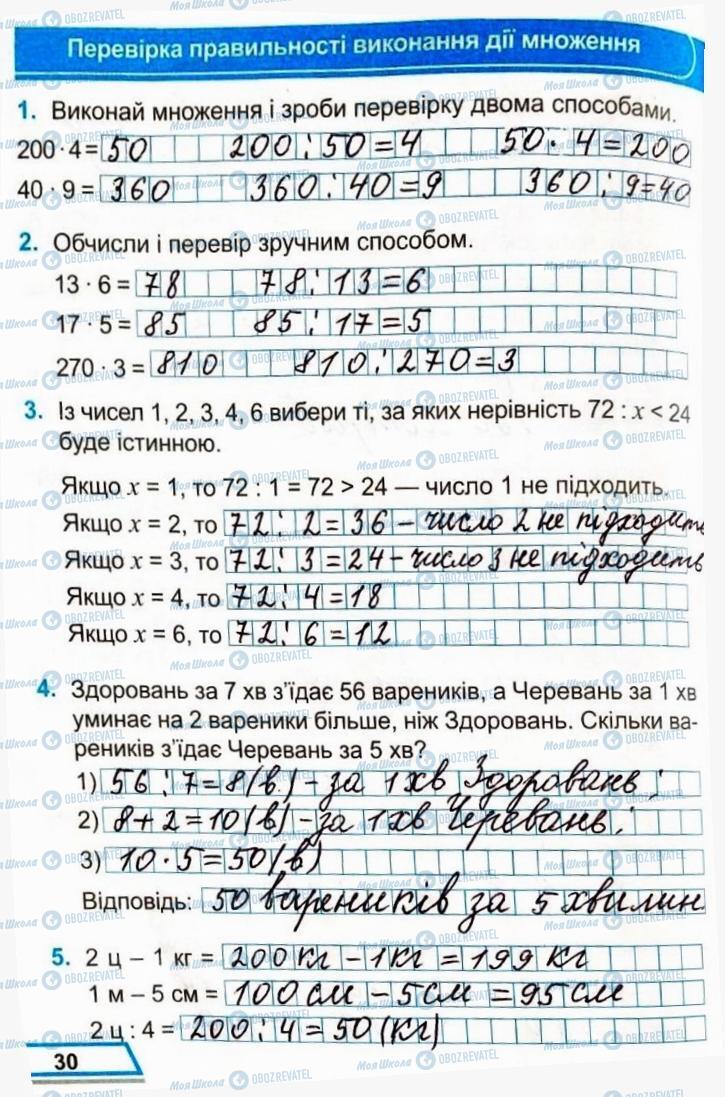 Перевірка правильності виконання дії множення
1. Виконай множення і зроби перевірку двома способами.
200 · 4 = 50 200 : 50 = 4 50 · 4 = 200
40 · 9 = 360 360 : 40 = 9 360 : 9 = 40
2. Обчисли і перевір зручним способом.
13 · 6 = 78 78 : 13 = 6
17 · 5 = 85 85 : 17 = 5
270 · 3 = 810 810 : 270 = 3
3. Із чисел 1, 2, 3, 4, 6 вибери ті, за яких нерівність 72 : x < 24
буде істинною.
Якщо x = 1, то 72 : 1 = 72 > 24 — число 1 не підходить.
Якщо x = 2, то 72 : 2 = 36 – число 2 не підходить
Якщо x = 3, то 72 : 3 = 24 – число 3 не підходить
Якщо x = 4, то 72 : 4 = 18
Якщо x = 6, то 72 : 6 = 12
4. Здоровань за 7 хв з'їдає 56 вареників, а Черевань за 1 хв
уминає на 2 вареники більше, ніж Здоровань. Скільки ва-
реників з'їдає Черевань за 5 хв?
1) 56 : 7 = 8 (в.) – за 1 хв Здоровань;
2) 8 + 2 = 10 (в) – за 1 хв Черевань;
3) 10 · 5 = 50 (в)
Відповідь: 50 вареників за 5 хвилин
5. 2 ц – 1 кг = 200 кг – 1 кг = 199 кг
1 м – 5 см = 100 см – 5 см = 95 см
2 ц : 4 = 200 : 4 = 50 (кг)
30